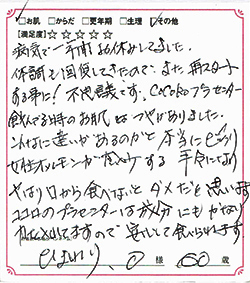 □お肌 □からだ □更年期 □生理 ☑その他
【満足度】☆☆☆☆☆
病気で一年前お休みしてました。
体調も回復してきたので、また再スタート
する事に! 不思議です。ココロプラセンター
飲んでる時のお肌はつやがありました。
こんなに違いがあるのかと本当にビックリ
女性ホルモンが
やはり口から食べないとダメだと思います
ココロのプラセンターは成分にもかなり
ますので安心して食べられます
様 60 歳